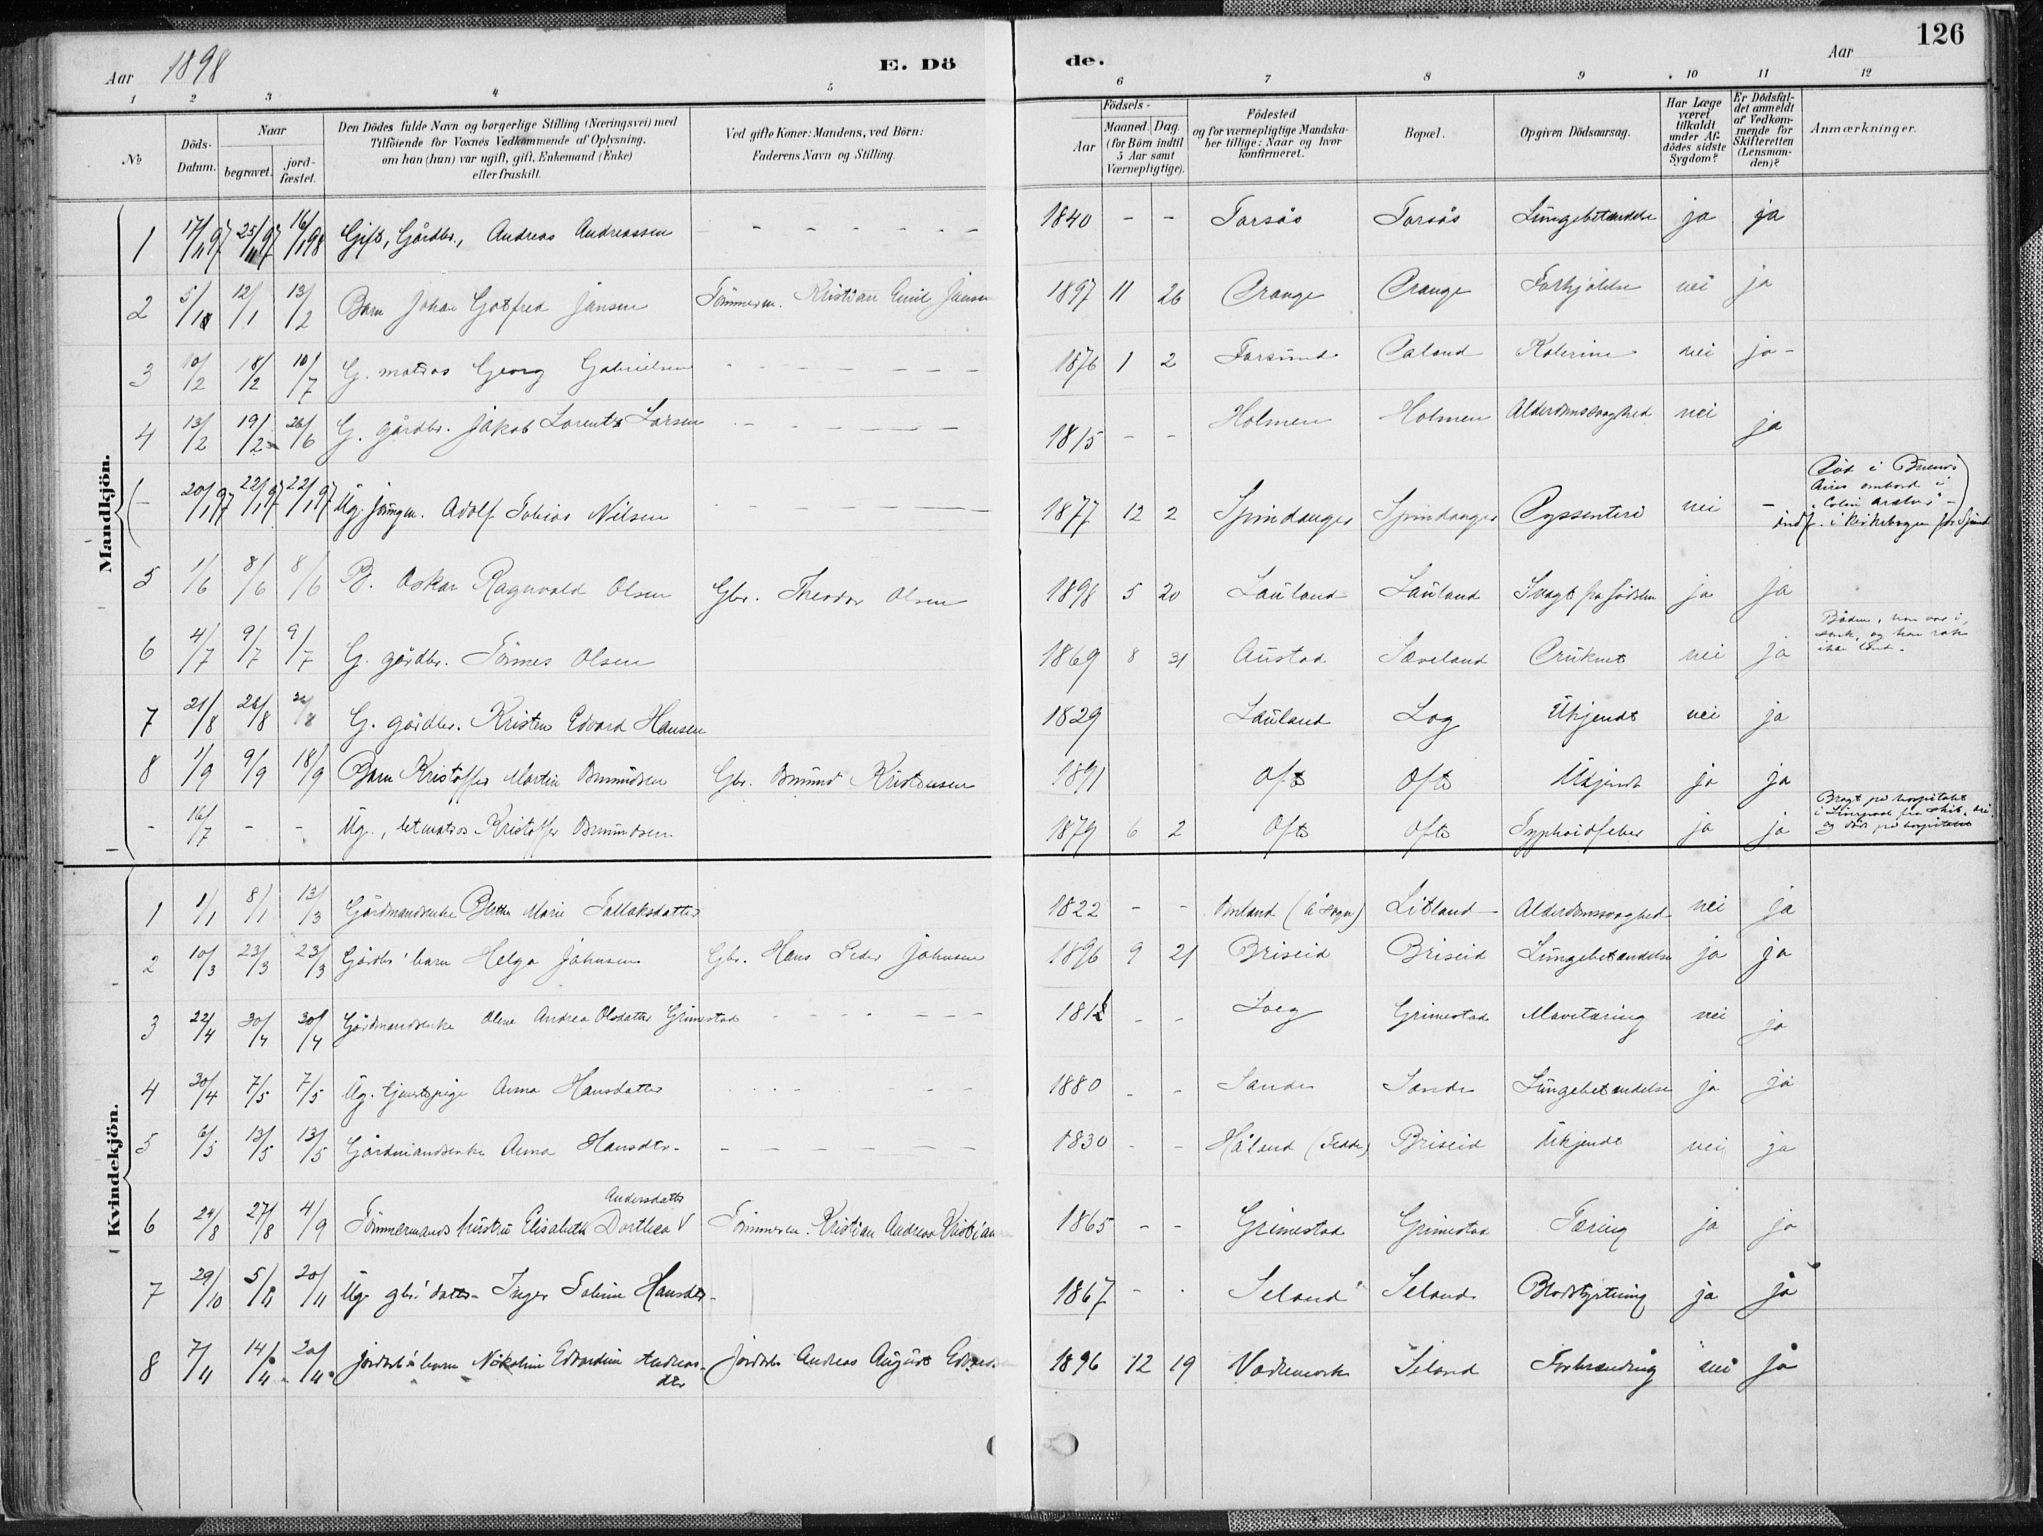 126
Aar 1898 E. Döde. Aar
1 2 3 4 5 6 7 8 9 10 11 12
№
Döds-Datum.
Naar
begravet.
jord-fæstet.
Den Dödes fulde Navn og borgerlige Stilling (Næringsvei) med
Tilföiende for Voxnes Vedkommende af Oplysning,
om han (hun) var ugift, gift, Enkemand (Enke)
eller fraskilt.
Ved gifte Koner: Mandens, ved Børn:
Faderens Navn og Stilling.
Födsels-
Aar
Maaned. Dag.
(for Börn indtil
5 Aar samt
Værnepligtige).
Födested
og for værnepligtige Mandska-
ber tillige: Naar og hvor
konfirmeret.
Bopæl.
Opgiven Dödsaarsag.
Har Læge
været
tilkaldt
under Af-
dödes sidste
Sygdom?
Er Dödsfal-
det anmeldt
af Vedkom-
mende for
Skifteretten
(Lensman-
den)?
Anmærkninger.
Mandkjön.
1 17/11 97 25/11 97 16/1 98 Gift, Gårdbr., Andreas Andreassen - - - - - - 1840 - - Torsøs Torsøs Lungebetændelse ja ja
2 5/1 12/1 13/2 Barn Johan Gotfred Jansen Tømmerm. Kristian Emil Jansen 1897 11 26 Orange Orange Forkjølelse nei ja
3 10/2 18/2 10/7 G. matros Georg Gabrielsen - - - - - - 1876 1 2 Farsund nei ja -
4 13/2 19/2 26/6 G. gårdbr. Jakob Lorents Larsen - - - - - 1815 - - Holmen Holmen Alderdomssvaghed nei ja
- 20/1 97 22/1 97 22/1 97 Ug. jungm. Adolf Tobias Nilsen - - - - - 1877 12 2 Spindanger Spindanger Dyssenteri nei - Død i Buenos
Aires ombord i
indf. i kirkebogen for
5 1/6 8/6 8/6 B. Oskar Ragnvald Olsen Gbr. Theodor Olsen 1898 5 20 Lauland Lauland Svagt fra fødslen ja ja
6 4/7 9/7 9/7 G. gårdbr. Tønnes Olsen 1869 8 31 Austad Sæveland Druknet nei ja Båden, han var i,
sank, og han
ikke land -
7 21/8 26/8 26/8 G. gårdbr. Kristen Edvard Hansen 1829 Lauland Log Ukjendt nei ja
8 1/9 9/9 18/9 Barn Kristoffer Martin Omundsen Gbr. Omund Kristensen 1891 Ofte Ofte Ukjendt ja ja
- 16/7 - - Ug., letmatros Kristoffer Omundsen 1879 6 2 Ofte Ofte Typhoidfeber ja ja Bragt på hospitalet
i
og døde på hospitalet
Kvindekjön.
1 1/1 8/1 13/3 Gårdmandsenke Berthe Marie Tallaksdatter 1822 - - Omland (Å sogn) Litland - Alderdomssvaghed nei ja
2 10/3 23/3 23/3 Gårdbr' barn Helga Johnsen Gbr. Hans Peder Johnsen 1896 9 21 Briseid Briseid Lungebetændelse ja ja
3 22/4 30/4 30/4 Gårdmandsenke Olene Andrea Olsdatter Grimestad - - - - - - 1818 - - Loeg Grimestad Mavetæring nei ja
4 30/4 7/5 7/5 Ug. tjenestpige Anna Hansdatter - - - - - 1880 - - Sande Sande Lungebetændelse ja ja
5 6/5 13/5 13/5 Gårdmandsenke Anna Hansdtr. - - - - - - 1830 - - Håland (Fedde) Briseid Ukjendt nei ja
Andersdatter
6 24/8 27/8 4/9 Tømmermands hustru Elisabeth Dorthea V Tømmerm. Kristian Andreas Kristiansen 1865 - - Grimestad Grimestad Tæring ja ja
7 29/10 5/11 20/11 Ug. gbr' datter - Inger Toline Hansdtr - 1867 - - Seland Seland Blodstyrtning ja ja
8 7/11 14/11 20/11 Jordarb' barn Nikoline Edvardine Andreas-
dtr Jordarb. Andreas August Edvardsen 1896 12 19 Vademark Seland Forbrænding nei ja